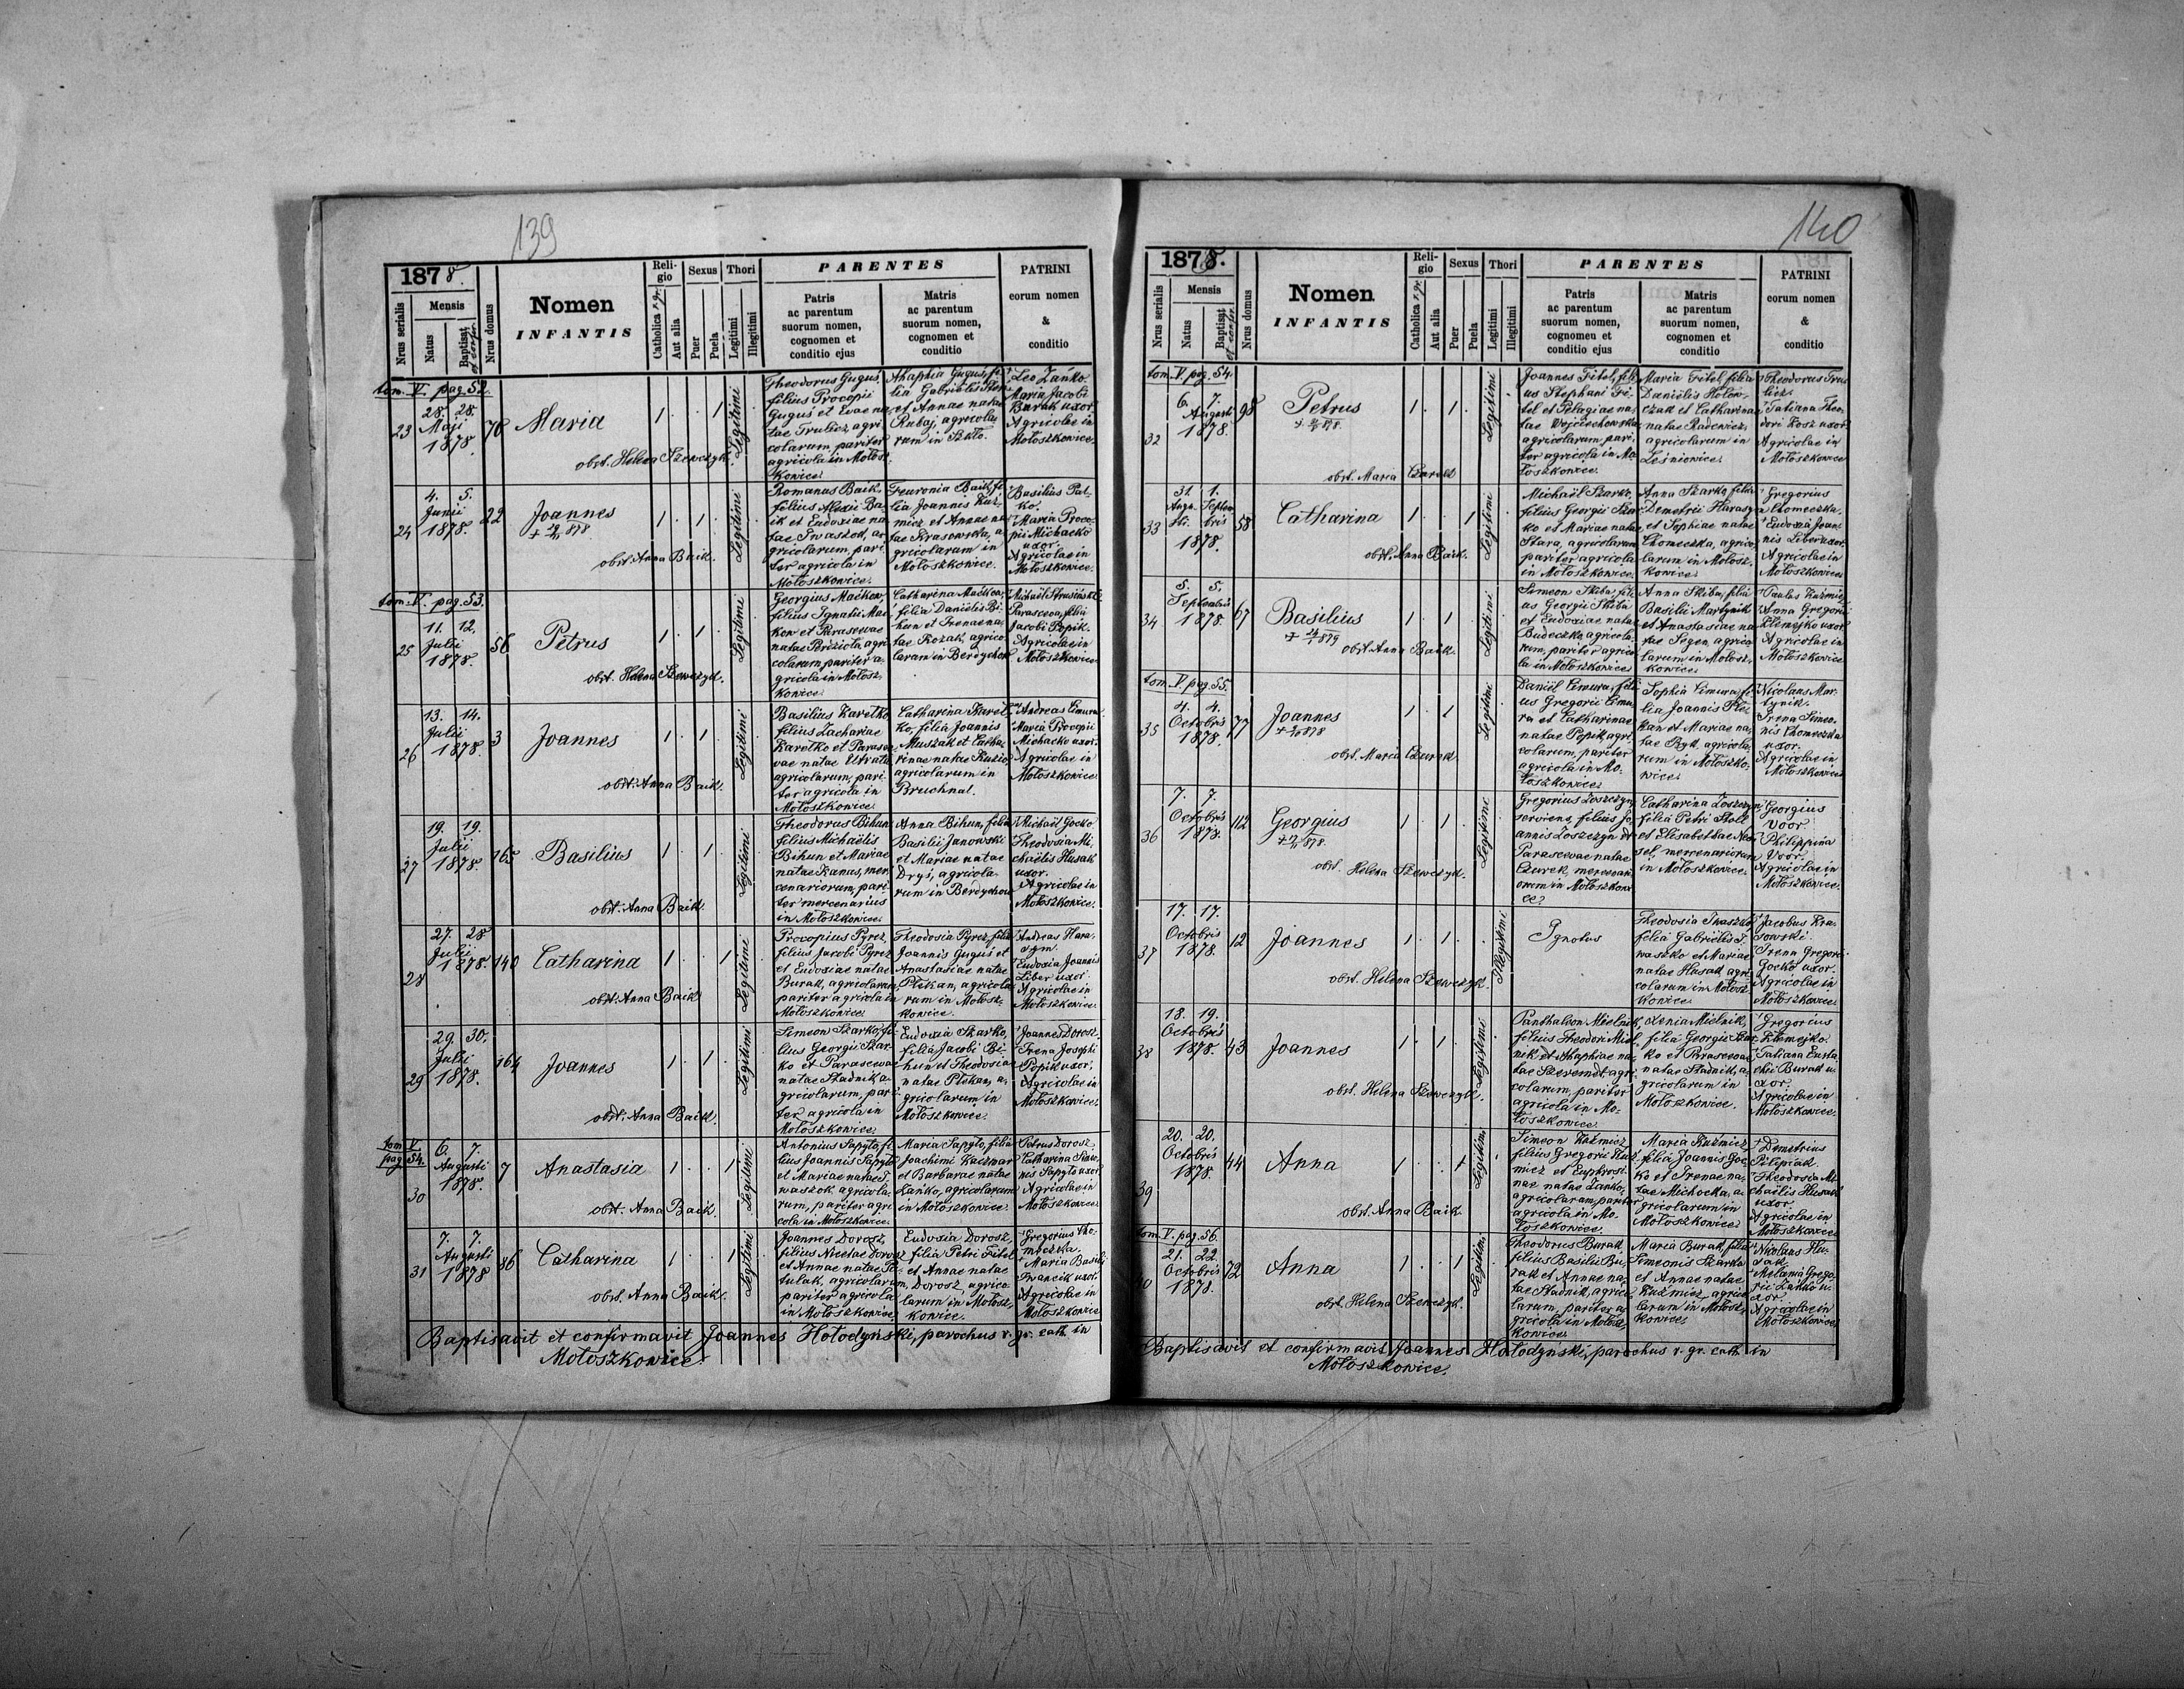 139
1878.
Nrus serialis
Mensis
Natus
Baptisat et confir.
Nrus domus
Nomen
INFANTIS
Religio
Catholica r. gr.
Aut alia
Sexus
Puer
Puela
Thori
Legitimi
Illegitimi
PARENTES
Patris
ac parentum
suorum nomen,
cognomen et
conditio ejus
Matris
ac parentum
suorum nomen,
cognomen et
conditio
PATRINI
eorum nomen
&
conditio
tom. V. pag. 52.
23
28. 28.
Maji
1878.
70
Maria
obst. Helena Szewczyk.
Legitimi
Theodorus Gugus,
filius Procopii
Gugus et Evae na-
tae Trulicz, agri-
colarum, pariter
agricola in Mołosz-
kowice.
Ahaphia Gugus, fi-
lia Gabrielis
et Annae natae
Rubaj, agricola-
rum in Szkło.
Leo Zańko.
Maria Jacobi
Burak uxor.
Agricolae in
Mołoszkowice.
24
4. 5.
Junii
1878.
22
Joannes
obst. Anna Baik.
Legitimi
Romanus Baik,
filius Alexii Ba-
ik et Eudoxiae na-
tae Iwaszek, a-
gricolarum, pari-
ter agricola in
Mołoszkowice.
Feuronia Baik, fi-
lia Joannis Kuź-
micz et Annae na-
tae Krasowska, a-
gricolarum in
Mołoszkowice.
Basilius Pat-
ko.
Maria Proco-
pii Michaćko
uxor.
Agricolae in
Mołoszkowice.
tom. V. pag. 53.
25
11. 12.
Julii
1878.
56
Petrus
obst. Helena Szewczyk.
Legitimi
Georgius Maćkow,
filius Ignatii Mać-
kow et Parascevae
natae agri-
colarum, pariter a-
gricola in Mołosz-
kowice.
Catharina Maćkow,
filia Danielis Bi-
hun et Irenae na-
tae Kozak, agrico-
larum in Berdychow
Michaël
Parasceva, filia
Jacobi Popik.
Agricolae in
Mołoszkowice
26
13. 14.
Julii
1878.
3
Joannes
obst. Anna Baik.
Legitimi
Basilius Karetko
filius Zachariae
Karetko et Parasce-
vae natae Utrata,
agricolarum, pari-
ter agricola in
Mołoszkowice
Catharina Karet-
ko, filia Joannis
Muszak et Catha-
rinae natae
agricolarum in
Bruchnal.
Andreas Cimura.
Maria Procopii
Michaćko uxor.
Agricolae in
Mołoszkowice.
27
19. 19.
Julii
1878.
165
Basilius
obst. Anna Baik.
Legitimi
Theodorus Bihun
filius Michaëlis
Bihun et Mariae
natae Kanus, mer-
cenariorum, pari-
ter mercenarius
in Mołoszkowice.
Anna Bihun, filia
Basilii Janowski
et Mariae natae
Dryś, agricola-
rum in Berdychow
Michaël Goćko
Theodosia Mi-
chaëlis Husak
uxor.
Agricolae in
Mołoszkowice.
28
27. 28
Julii
1878.
140
Catharina
obst. Anna Baik
Legitimi
Procopius Pyrez,
filius Jacobi Pyrez
et Eudoxiae natae
Burak, agricolarum,
pariter agricola in
Mołoszkowice.
Theodosia Pyrez, filia
Joannis Gugus et
Anastasiae natae
Plekan, agricola-
rum in Mołosz-
kowice.
Andreas Hara-
sym.
Eudoxia Joannis
Liber uxor.
Agricolae in
Mołoszkowice.
29
29. 30.
Julii
1878.
164
Joannes
obst. Anna Baik.
Legitimi
Simeon Szarko, fi-
lius Georgii Szar-
ko et Parascevae
natae Stadnik a-
gricolarum, pari-
ter agricola in
Mołoszkowice.
Eudoxia Szarko,
filia Jacobi Bi-
hun et Theodosiae
natae Plekan, a-
gricolarum in
Mołoszkowice.
Joannes Dorosz.
Irena Josephi
Popik uxor.
Agricolae in
Mołoszkowice.
tom V.
pag. 54.
30
6. 7.
Augusti
1878.
7
Anastasia
obst. Anna Baik.
Legitimi
Antonius Sapyto, fi-
lius Joannis Sapyto
et Mariae natae I-
waszok, agricola-
rum, pariter agri-
cola in Mołoszkowice.
Maria Sapyto, filia
Joachimi Kaczmar
et Barbarae natae
Zańko, agricolarum
in Mołoszkowice.
Petrus Dorosz
Catharina
Sapyto uxor.
Agricolae in
Mołoszkowice.
31
7. 7.
Augusti
1878
86
Catharina
obst. Anna Baik.
Legitimi
Joannes Dorosz,
filius Nicetae Dorosz
et Annae natae
agricolarum,
pariter agricola
in Mołoszkowice.
Eudoxia Dorosz,
filia Petri Fitel
et Annae natae
Dorosz, agrico-
larum in Mołosz-
kowice.
Gregorius Cho-
meczka.
Maria Basilii
Iwancik uxor.
Agricolae in
Mołoszkowice
Baptisavit et confirmavit Joannes Hołodyński, parochus r. gr. cath. in
Mołoszkowice.
140
1878.
Nrus serialis
Mensis
Natus
Baptisat et confir.
Nrus domus
Nomen
INFANTIS
Religio
Catholica r. gr.
Aut alia
Sexus
Puer
Puela
Thori
Legitimi
Illegitimi
PARENTES
Patris
ac parentum
suorum nomen,
cognomen et
conditio ejus
Matris
ac parentum
suorum nomen,
cognomen et
conditio
PATRINI
eorum nomen
&
conditio
tom. V. pag. 54.
32
6. 7.
Augusti
1878.
98
Petrus
obst. Maria
Legitimi
Joannes Fitel, fili-
us Stephani Fi-
tel et Pelagiae na-
tae Wojciechowska
agricolarum, pari-
ter agricola in Mo-
łoszkowice.
Maria Fitel, filia
Danielis Hołow-
czak et Catharinae
natae Radewicz,
agricolarum in
Leśniowice.
Theodorus Tru-
licz.
Tatiana Theo-
dori Kosz uxor.
Agricolae in
Mołoszkowice
33
31. 1.
Augu- Septem-
sti. bris
1878.
58
Catharina
obst. Anna Baik.
Legitimi
Michaël Szarko,
filius Georgii Szar-
ko et Mariae natae
Stara, agricolarum
pariter agricola
in Mołoszkowice.
Anna Szarko, filia
Demetrii Harasym
et Sophiae natae
Chomeczka, agrico-
larum in Mołosz-
kowice.
Gregorius
Chomeczka.
Eudoxia Joan-
nis Liber uxor.
Agricolae in
Mołoszkowice.
34
5. 5.
Septembris
1878.
67
Basilius
obst. Anna Baik.
Legitimi
Simeon Skiba, fili-
us Georgii Skiba
et Eudoxiae natae
Budeczka, agricola-
rum, pariter agrico-
la in Mołoszkowice.
Anna Skiba, filia
Basilii Martynik
et Anastasiae na-
tae Segen, agrico-
larum in Mołosz-
kowice.
Paulus Kuźmicz.
Anna Gregorii
Klimejko uxor.
Agricolae in
Mołoszkowice
tom. V. pag. 55.
35
4. 4.
Octobris
1878.
77
Joannes
obst. Maria
Legitimi
Daniel Cimura, fili-
us Gregorii Cimu-
ra et Catharinae
natae Popik, agri-
colarum, pariter
agricola in Mo-
łoszkowice.
Sophia Cimura, fi-
lia Joannis Ple-
kan et Mariae na-
tae Ryk, agricola-
rum in Mołoszko-
wice.
Nicolaus Mar-
tynik.
Irena Simeo-
nis Chomeczka
uxor.
Agricolae in
Mołoszkowice
36
7. 7.
Octobris
1878.
112
Georgius
obst. Helena Szewczyk.
Legitimi
Gregorius Zoszczyn,
serviens, filius Jo-
annis Zoszczyn et
Parascevae natae
Czurek, mercenari-
orum in Mołoszkowi-
ce.
Catharina Zoszczyn,
filia Petri Stoll
et Elisabethae
mercenariorum
in Mołoszkowice.
Georgius
Voor.
Philippina
Voor.
Agricolae in
Mołoszkowice.
37
17. 17.
Octobris
1878.
12
Joannes
obst. Helena Szewczyk.
Illegitimi
Ignotus
Theodosia Iwaszko,
filia Gabrielis I-
waszko et Mariae
natae Husak, agri-
colarum in Mołosz-
kowice.
Jacobus Kra-
sowski.
Irena Gregorii
Goćko uxor.
Agricolae in
Mołoszkowice
38
18. 19.
Octobris
1878.
43
Joannes
obst. Helena Szewczyk.
Legitimi
Panthaleon Mielnik,
filius Theodori Miel-
nik et Ahaphiae na-
tae agri-
colarum, pariter
agricola in Mo-
łoszkowice.
Xenia Mielnik,
filia Georgii Szar-
ko et Parascevae
natae Stadnik, a-
gricolarum in
Mołoszkowice.
Gregorius
Klimejko.
Tatiana Eusta-
chii Burak u-
xor.
Agricolae in
Mołoszkowice.
39
20. 20.
Octobris
1878.
44
Anna
obst. Anna Baik.
Legitimi
Simeon Kuźmicz,
filius Gregorii Kuź-
micz et Euphrosi-
nae natae Zańko,
agricolarum, pariter
agricola in Mo-
łoszkowice.
Maria Kuźmicz,
filia Joannis Goć-
ko et Irenae na-
tae Michoćka, a-
gricolarum in
Mołoszkowice.
Demetrius
Pilipiak.
Theodosia Mi-
chaëlis Husak
uxor.
Agricolae in
Mołoszkowice
tom. V. pag. 56.
40
21. 22.
Octobris
1878.
72
Anna
obst. Helena Szewczyk.
Legitimi
Theodorus Burak
filius Basilii Bu-
rak et Annae na-
tae Stadnik, agrico-
larum, pariter a-
gricola in Mołosz-
kowice.
Maria Burak, filia
Simeonis Szarko
et Annae natae
Kuźmicz, agrico-
larum in Mołosz-
kowice
Nicolaus Hu-
sak.
Melania Grego-
rii Zańko u-
xor.
Agricolae in
Mołoszkowice.
Baptisavit et confirmavit Joannes Hołodyński, parochus r. gr. cath. in
Mołoszkowice.